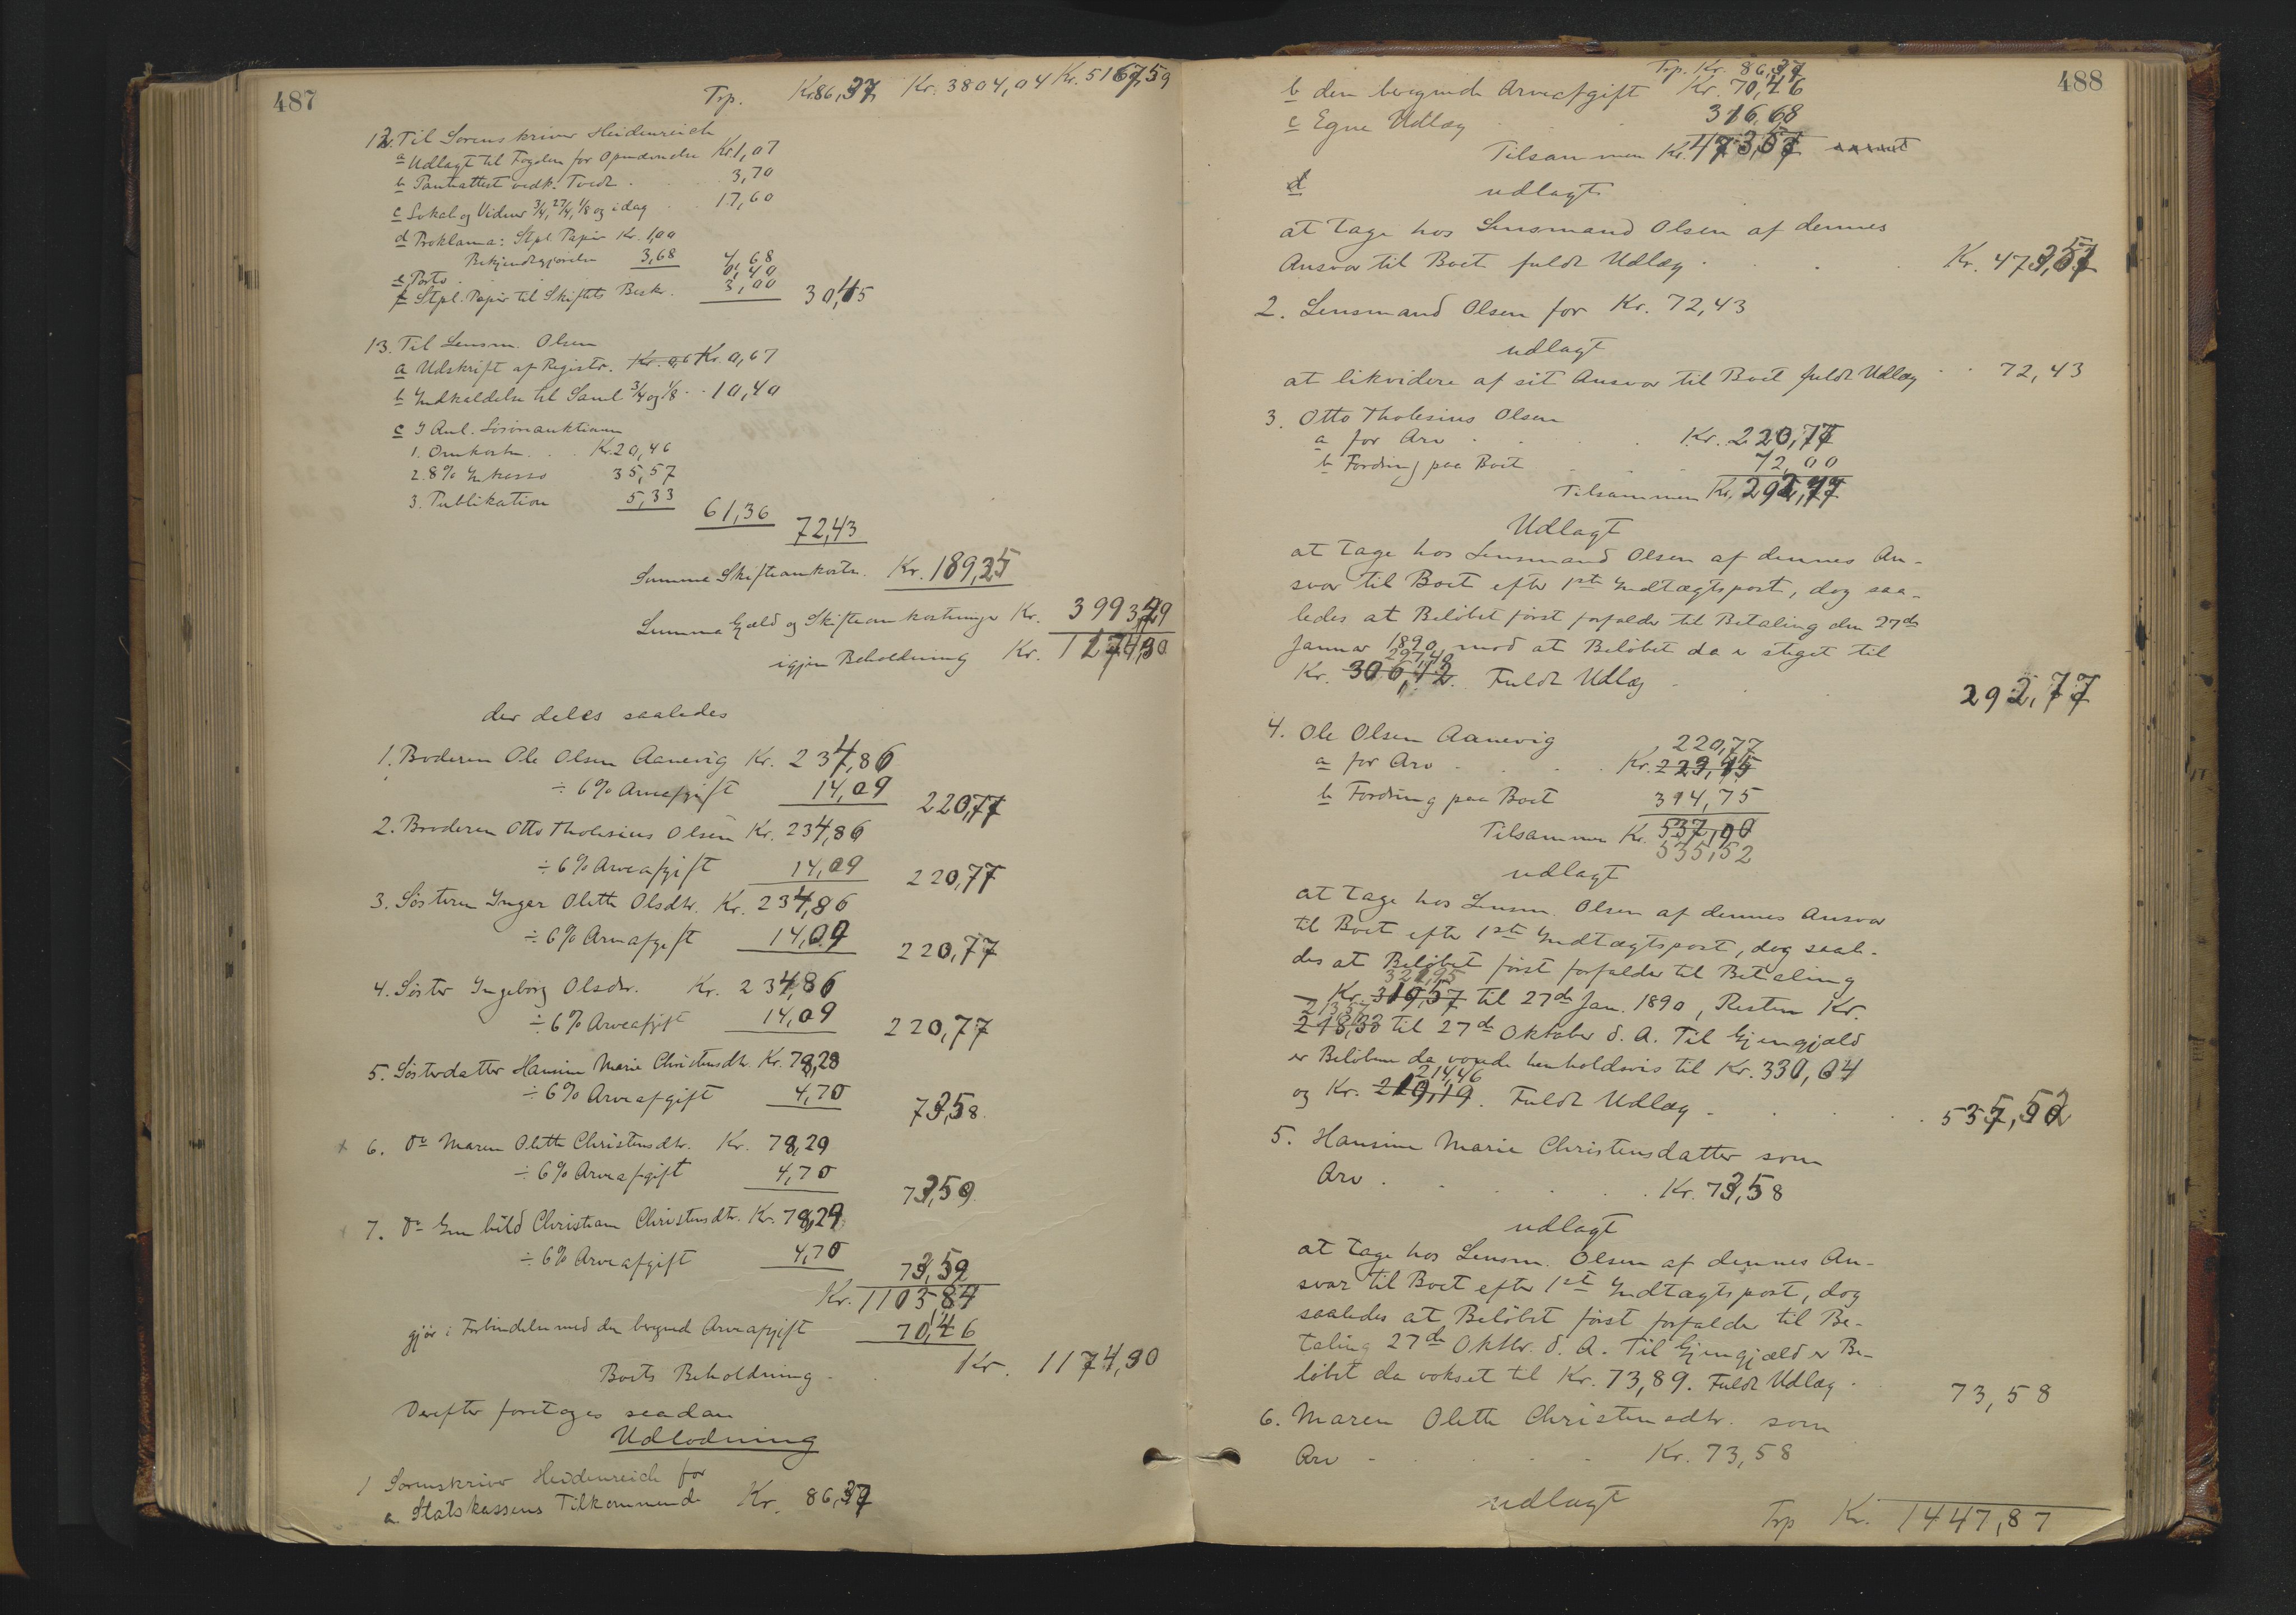 487
Trp. Kr 86,37 Kr. 3804,04 Kr. 5167,59
12. Til Sorenskriver Heidenreich
a Udlagt til Fogden for Kr. 1,07
b Pantattest vedk. Tvedt . 3,70
c Lokale og Vidner 3/4, 27/4, 1/8 og idag 17,60
d Proklama: Stpl. Papir Kr. 1,00
Bekjendtgjørelse 3,68 4,68
e Porto . 0,40
f Stpl. Papir til Skiftets Besk. 3,00 30,45
13. Til Lensm. Olsen
a Udskrift af Registr. Kr. 0,67
b Indkaldelse til Saml 3/4 og 1/8 . . 10,40
c I Anl. Løsøreauktionen
1. Omkostn. . . Kr. 20,46
2. 8% Inkasso 35,57
3. Publikation 5,33 61,36
72,43
Summa Skifteomkostn. Kr. 189,25
Summa Gjæld og Skifteomkostninger Kr. 3993,29
igjen Beholdning Kr. 1174,30
der deles saaledes
1. Broderen Ole Olsen Aanevig Kr. 234,86
÷ 6% Arveafgift 14,09 220,77
2. Broderen Otto Tholesius Olsen Kr. 234,86
÷ 6% Arveafgift 14,09 220,77
3. Søsteren Inger Olette Olsdtr. Kr. 234,86
÷ 6% Arveafgift 14,09 220,77
4. Søster Ingeborg Olsdr. Kr. 234,86
÷ 6% Arveafgift 14,09 220,77
5. Søsterdatter Hansine Marie Christensdtr. Kr. 78,28
÷ 6% Arveafgift 4,70 73,58
6. Do Maren Olette Christensdtr. Kr. 78,29
÷ 6% Arveafgift 4,70 73,59
7. Do Christiane Christensdtr. Kr. 78,29
÷ 6% Arveafgift 4,70 73,59
Kr. 1103,84
gjør i Forbindelse med den beregnede Arveafgift 70,46
Boets Beholdning . Kr. 1174,30
Derefter foretoges saadan
Udlodning
1 Sorenskriver Heidenreich for
a. Statskassens Tilkommende Kr. 86,37
488
Trp. Kr. 86,37
b den beregnede Arveafgift Kr. 70,46
c Egne Udlæg 316,68
Tilsammen Kr. 473,51
d udlagt
at tage hos Lensmand Olsen af dennes
Ansvar til Boet fuldt Udlæg . . . Kr. 473,51
2. Lensmand Olsen for Kr. 72,43
udlagt
at likvidere af sit Ansvar til Boet fuldt Udlæg . . 72,43
3. Otto Tholesius Olsen
a for Arv . . . Kr. 220,77
b Fordring paa Boet 72,00
Tilsammen Kr. 292,77
Udlagt
at tage hos Lensmand Olsen af dennes An-
svar til Boet efter 1ste Indtægtspost, dog saa-
ledes at Beløbet først forfalder til Betaling den 27de
Januar 1890, mod at Beløbet da er steget til
297,40
Kr. 306,12. Fuldt Udlæg 292,77
4. Ole Olsen Aanevig 220,77
a for Arv . . . Kr.
b Fordring paa Boet 314,75
Tilsammen Kr. 537,90
535,52
udlagt
at tage hos Lensm. Olsen af dennes Ansvar
til Boet efter 1ste Indtægtspost, dog saale-
des at Beløbet først forfalder til Betaling
321,95
— Kr. 319,57 til 27de Jan. 1890, Resten Kr.
213,57
218,33 til 27de Oktober d. A. Til Gjengjæld
er Beløbene da voxede henholdsvis til Kr. 330,04
214,46
og Kr. 219,19. Fuldt Udlæg . . . . 535,52
5. Hansine Marie Christensdatter som
Arv . . . . . Kr. 73,58
udlagt
at tage hos Lensm. Olsen af dennes An-
svar til Boet efter 1ste Indtægtspost, dog
saaledes at Beløbet først forfalder til Be-
taling 27de Oktbr. d. A. Til Gjengjæld er Be-
løbet da vokset til Kr. 73,89. Fuldt Udlæg . 73,58
6. Maren Olette Christensdtr. som
Arv . . . . . Kr. 73,58
udlagt
Trp Kr. 1447,87